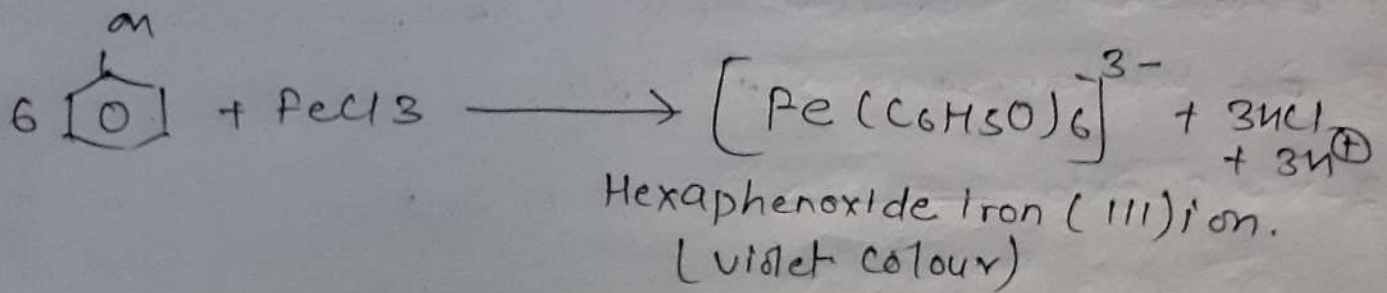 OH
6 + FeCl3 → [Fe(C6H5O)6]3- + 3HCl
+ 3H⊕
Hexaphenoxide iron (III) ion.
(violet colour)